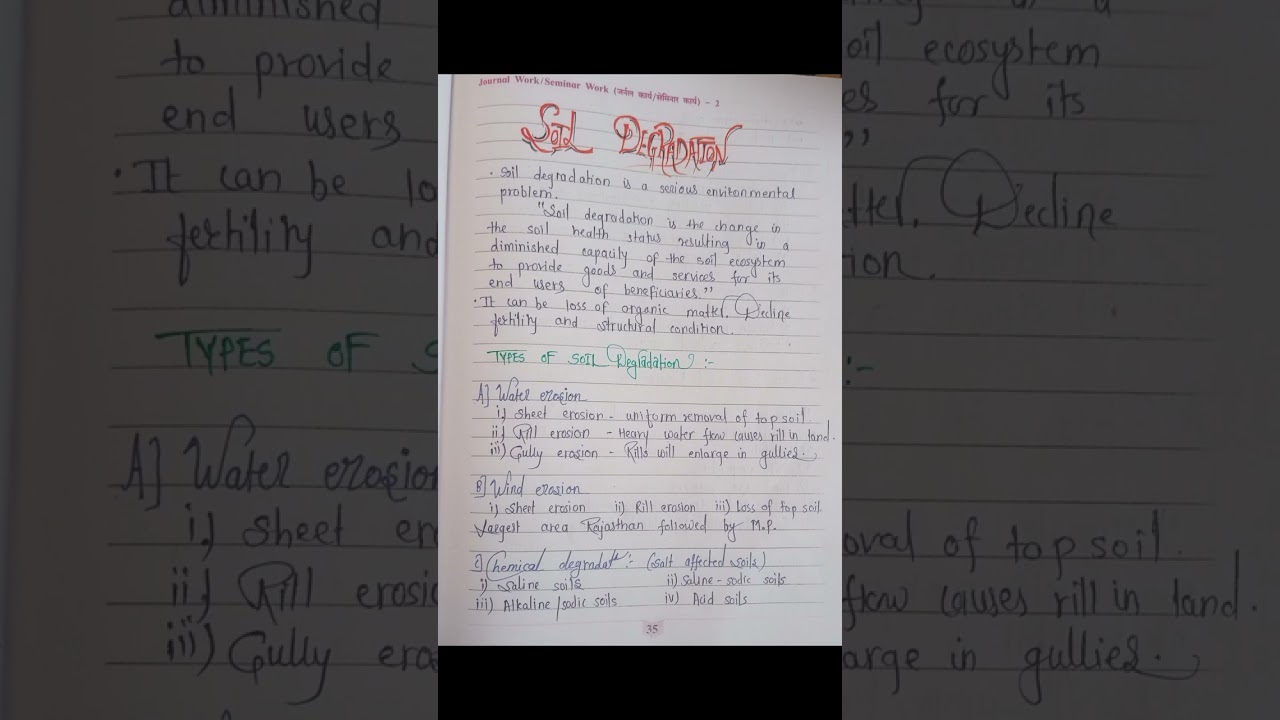 Journal Work/Seminar Work (जर्नल कार्य/सेमिनार कार्य) - 2
SOIL DEGRADATION
• Soil degradation is a serious environmental
problem.
"Soil degradation is the change in
the soil health status resulting in a
diminished capacity of the soil ecosystem
to provide goods and services for its
end users of beneficiaries."
• It can be loss of organic matter. Decline
fertility and structural condition.
TYPES OF SOIL Degradation :-
A] Water erosion
i.) Sheet erosion - uniform removal of top soil
ii.) Rill erosion - Heavy water flow causes rill in land.
iii) Gully erosion - Rills will enlarge in gullies.
B] Wind erosion
i) Sheet erosion ii) Rill erosion iii) Loss of top soil
Largest area Rajasthan followed by M.P.
C] Chemical degradatn :- (Salt affected soils)
i) Saline soils ii) Saline - sodic soils
iii) Alkaline/sodic soils iv) Acid soils
35